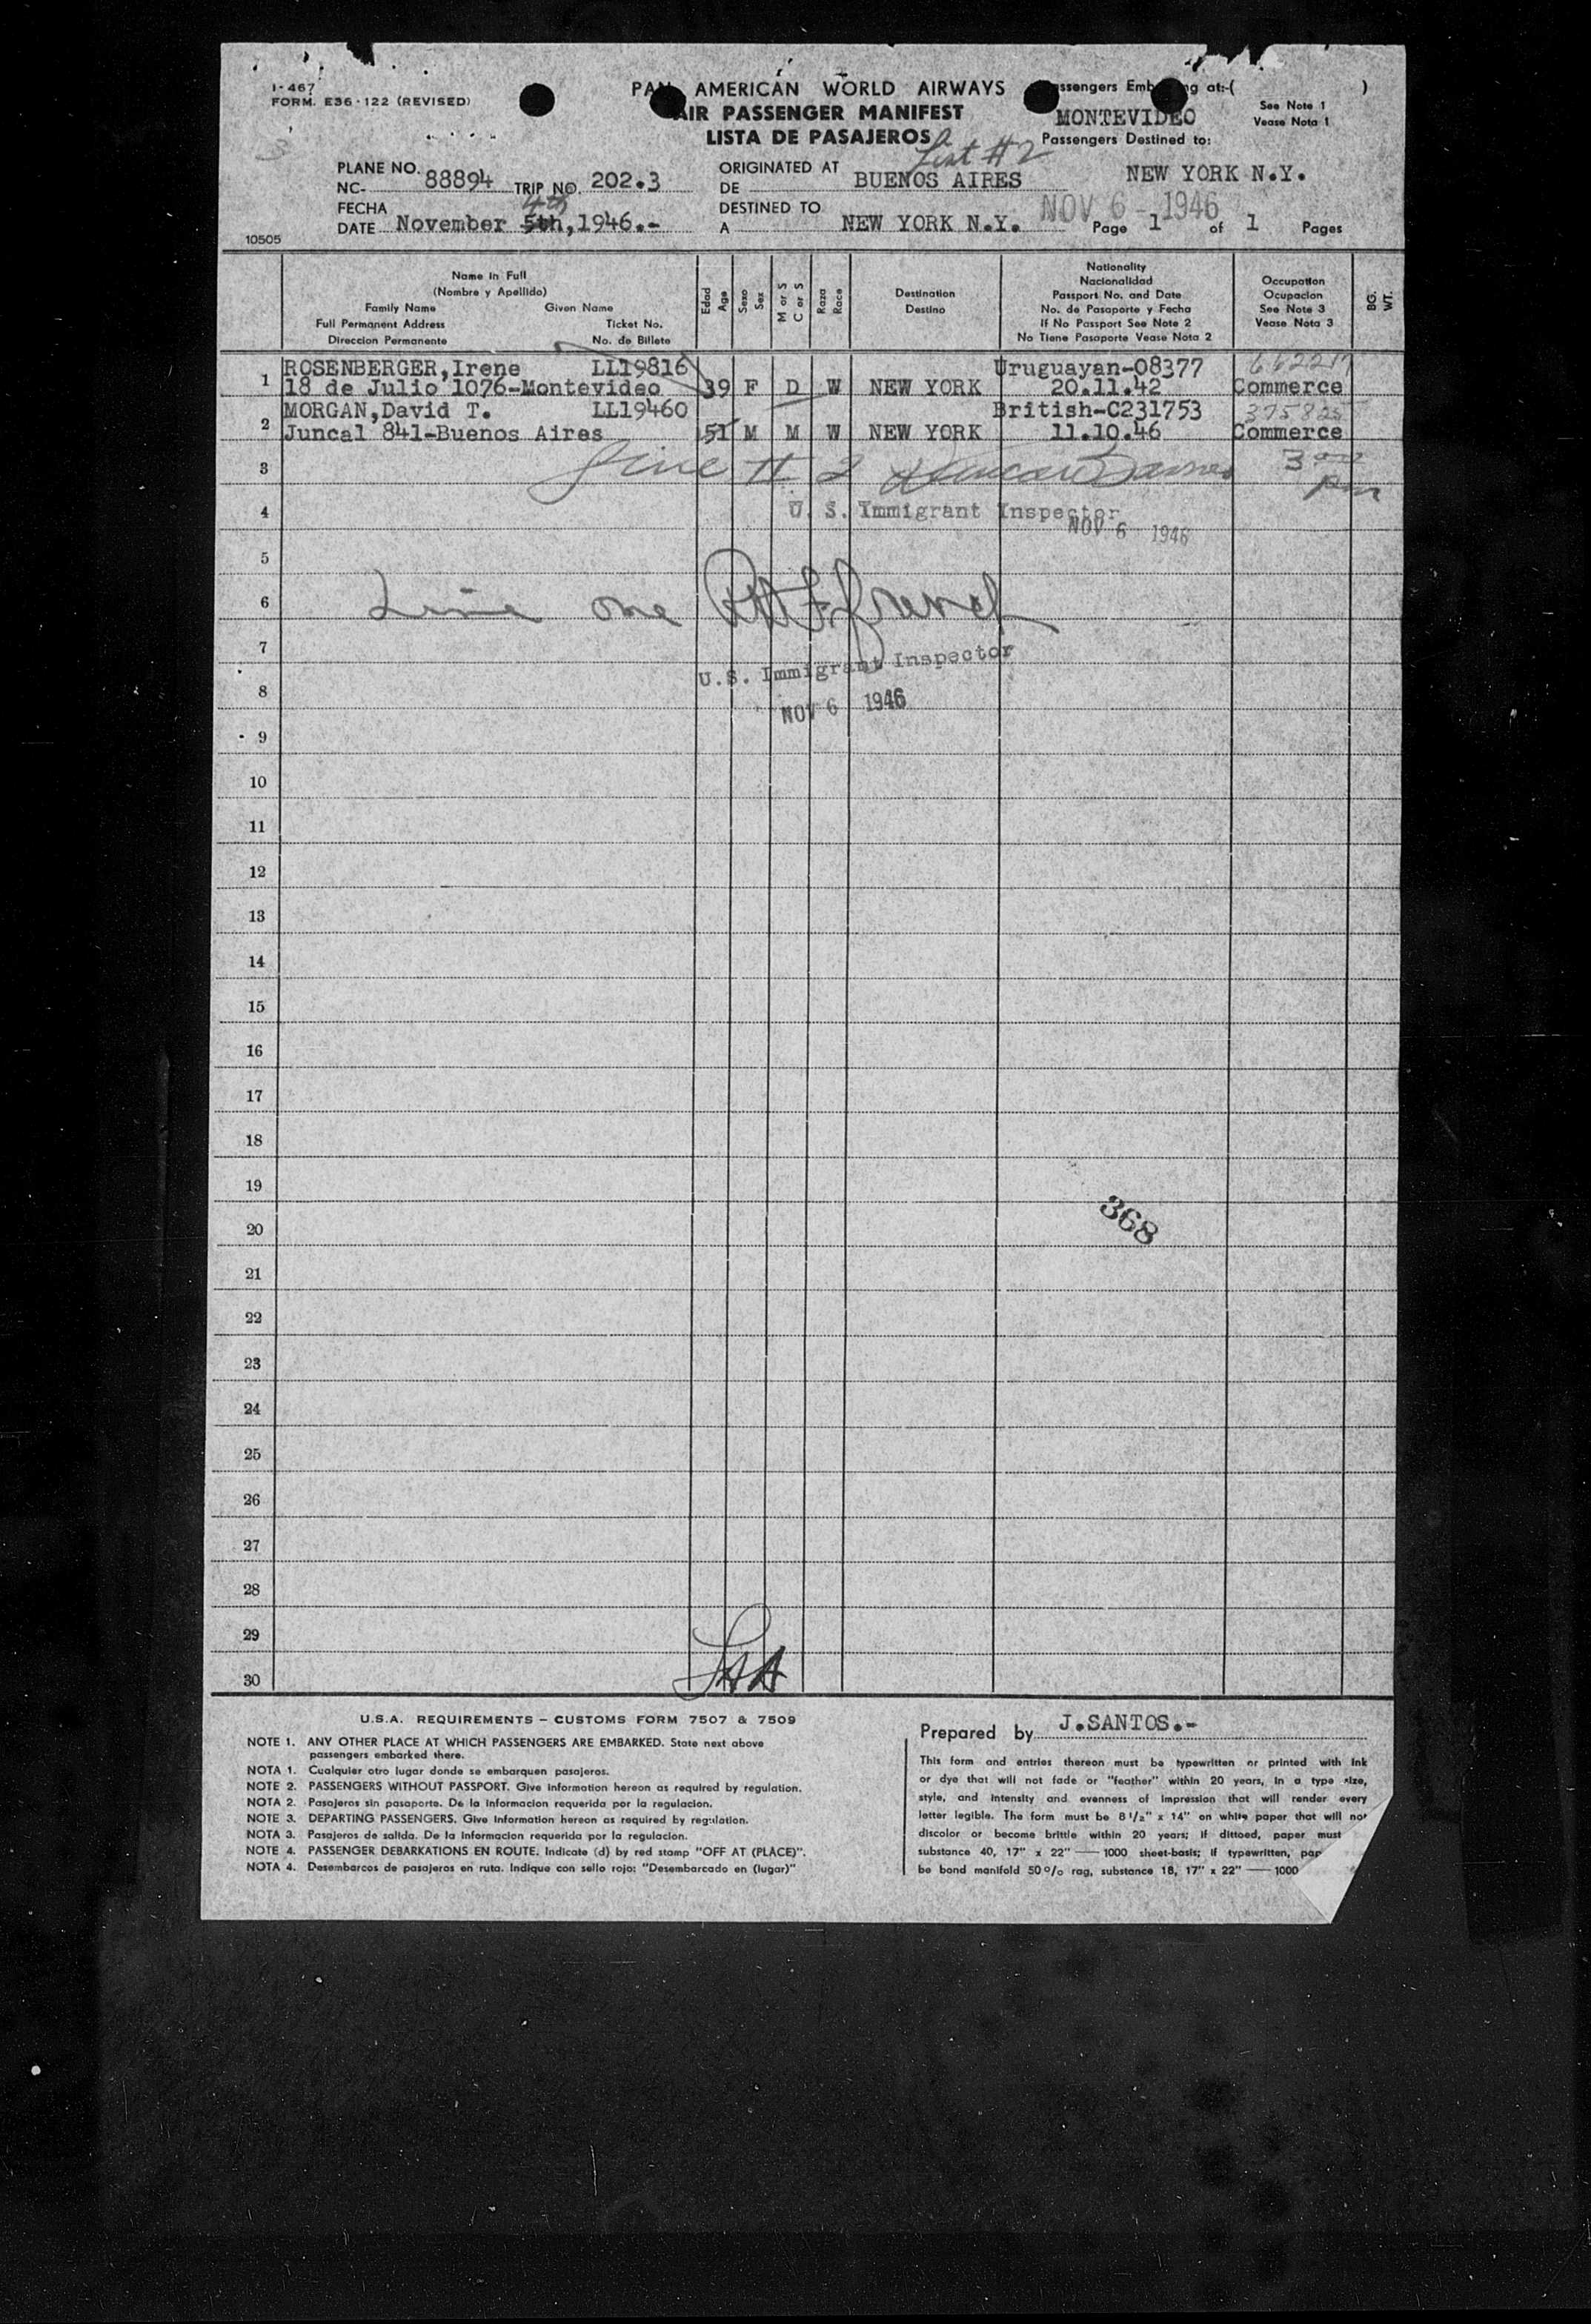 I-467
FORM. E36-122 (REVISED)
PAN AMERICAN WORLD AIRWAYS
AIR PASSENGER MANIFEST
LISTA DE PASAJEROS
List #2
Passengers Embarking at:-( )
MONTEVIDEO
See Note 1
Vease Nota 1
Passengers Destined to:
NEW YORK N.Y.
3
PLANE NO.
NC- 88894 TRIP NO. 202.3
ORIGINATED AT
DE BUENOS AIRES
FECHA 4th
DATE November 5th, 1946.-
DESTINED TO
A NEW YORK N.Y.
NOV 6 - 1946
Page 1 of 1 Pages
10505
Name in Full
(Nombre y Apellido)
Family Name Given Name
Full Permanent Address Ticket No.
Direccion Permanente No. de Billete
Edad
Age
Sexo
Sex
M or S
C or S
Raza
Race
Destination
Destino
Nationality
Nacionalidad
Passport No. and Date
No. de Pasaporte y Fecha
If No Passport See Note 2
No Tiene Pasaporte Vease Nota 2
Occupation
Ocupacion
See Note 3
Vease Nota 3
BG.
WT.
1 ROSENBERGER,Irene LL19816 Uruguayan-08377
18 de Julio 1076-Montevideo 39 F D W NEW YORK 20.11.42 Commerce
2 MORGAN,David T. LL19460 British-C231753
Juncal 841-Buenos Aires 51 M M W NEW YORK 11.10.46 Commerce
3 Line # 2 3 00 pm
4 U. S. Immigrant Inspector
NOV 6 1946
5
6 Line one French
7
U.S. Immigrant Inspector
8
NOV 6 1946
9
10
11
12
13
14
15
16
17
18
19
368
20
21
22
23
24
25
26
27
28
29
30
U.S.A. REQUIREMENTS – CUSTOMS FORM 7507 & 7509
NOTE 1. ANY OTHER PLACE AT WHICH PASSENGERS ARE EMBARKED. State next above
passengers embarked there.
NOTA 1. Cualquier otro lugar donde se embarquen pasajeros.
NOTE 2. PASSENGERS WITHOUT PASSPORT. Give information hereon as required by regulation.
NOTA 2. Pasajeros sin pasaporte. De la informacion requerida por la regulacion.
NOTE 3. DEPARTING PASSENGERS. Give information hereon as required by regulation.
NOTA 3. Pasajeros de salida. De la informacion requerida por la regulacion.
NOTE 4. PASSENGER DEBARKATIONS EN ROUTE. Indicate (d) by red stamp "OFF AT (PLACE)".
NOTA 4. Desembarcos de pasajeros en ruta. Indique con sello rojo: "Desembarcado en (lugar)"
Prepared by J.SANTOS.-
This form and entries thereon must be typewritten or printed with ink
or dye that will not fade or "feather" within 20 years, in a type size,
style, and intensity and evenness of impression that will render every
letter legible. The form must be 8 1/2" x 14" on white paper that will not
discolor or become brittle within 20 years; if dittoed, paper must
substance 40, 17" x 22" — 1000 sheet-basis; if typewritten, pap
be bond manifold 50% rag, substance 18, 17" x 22" — 1000